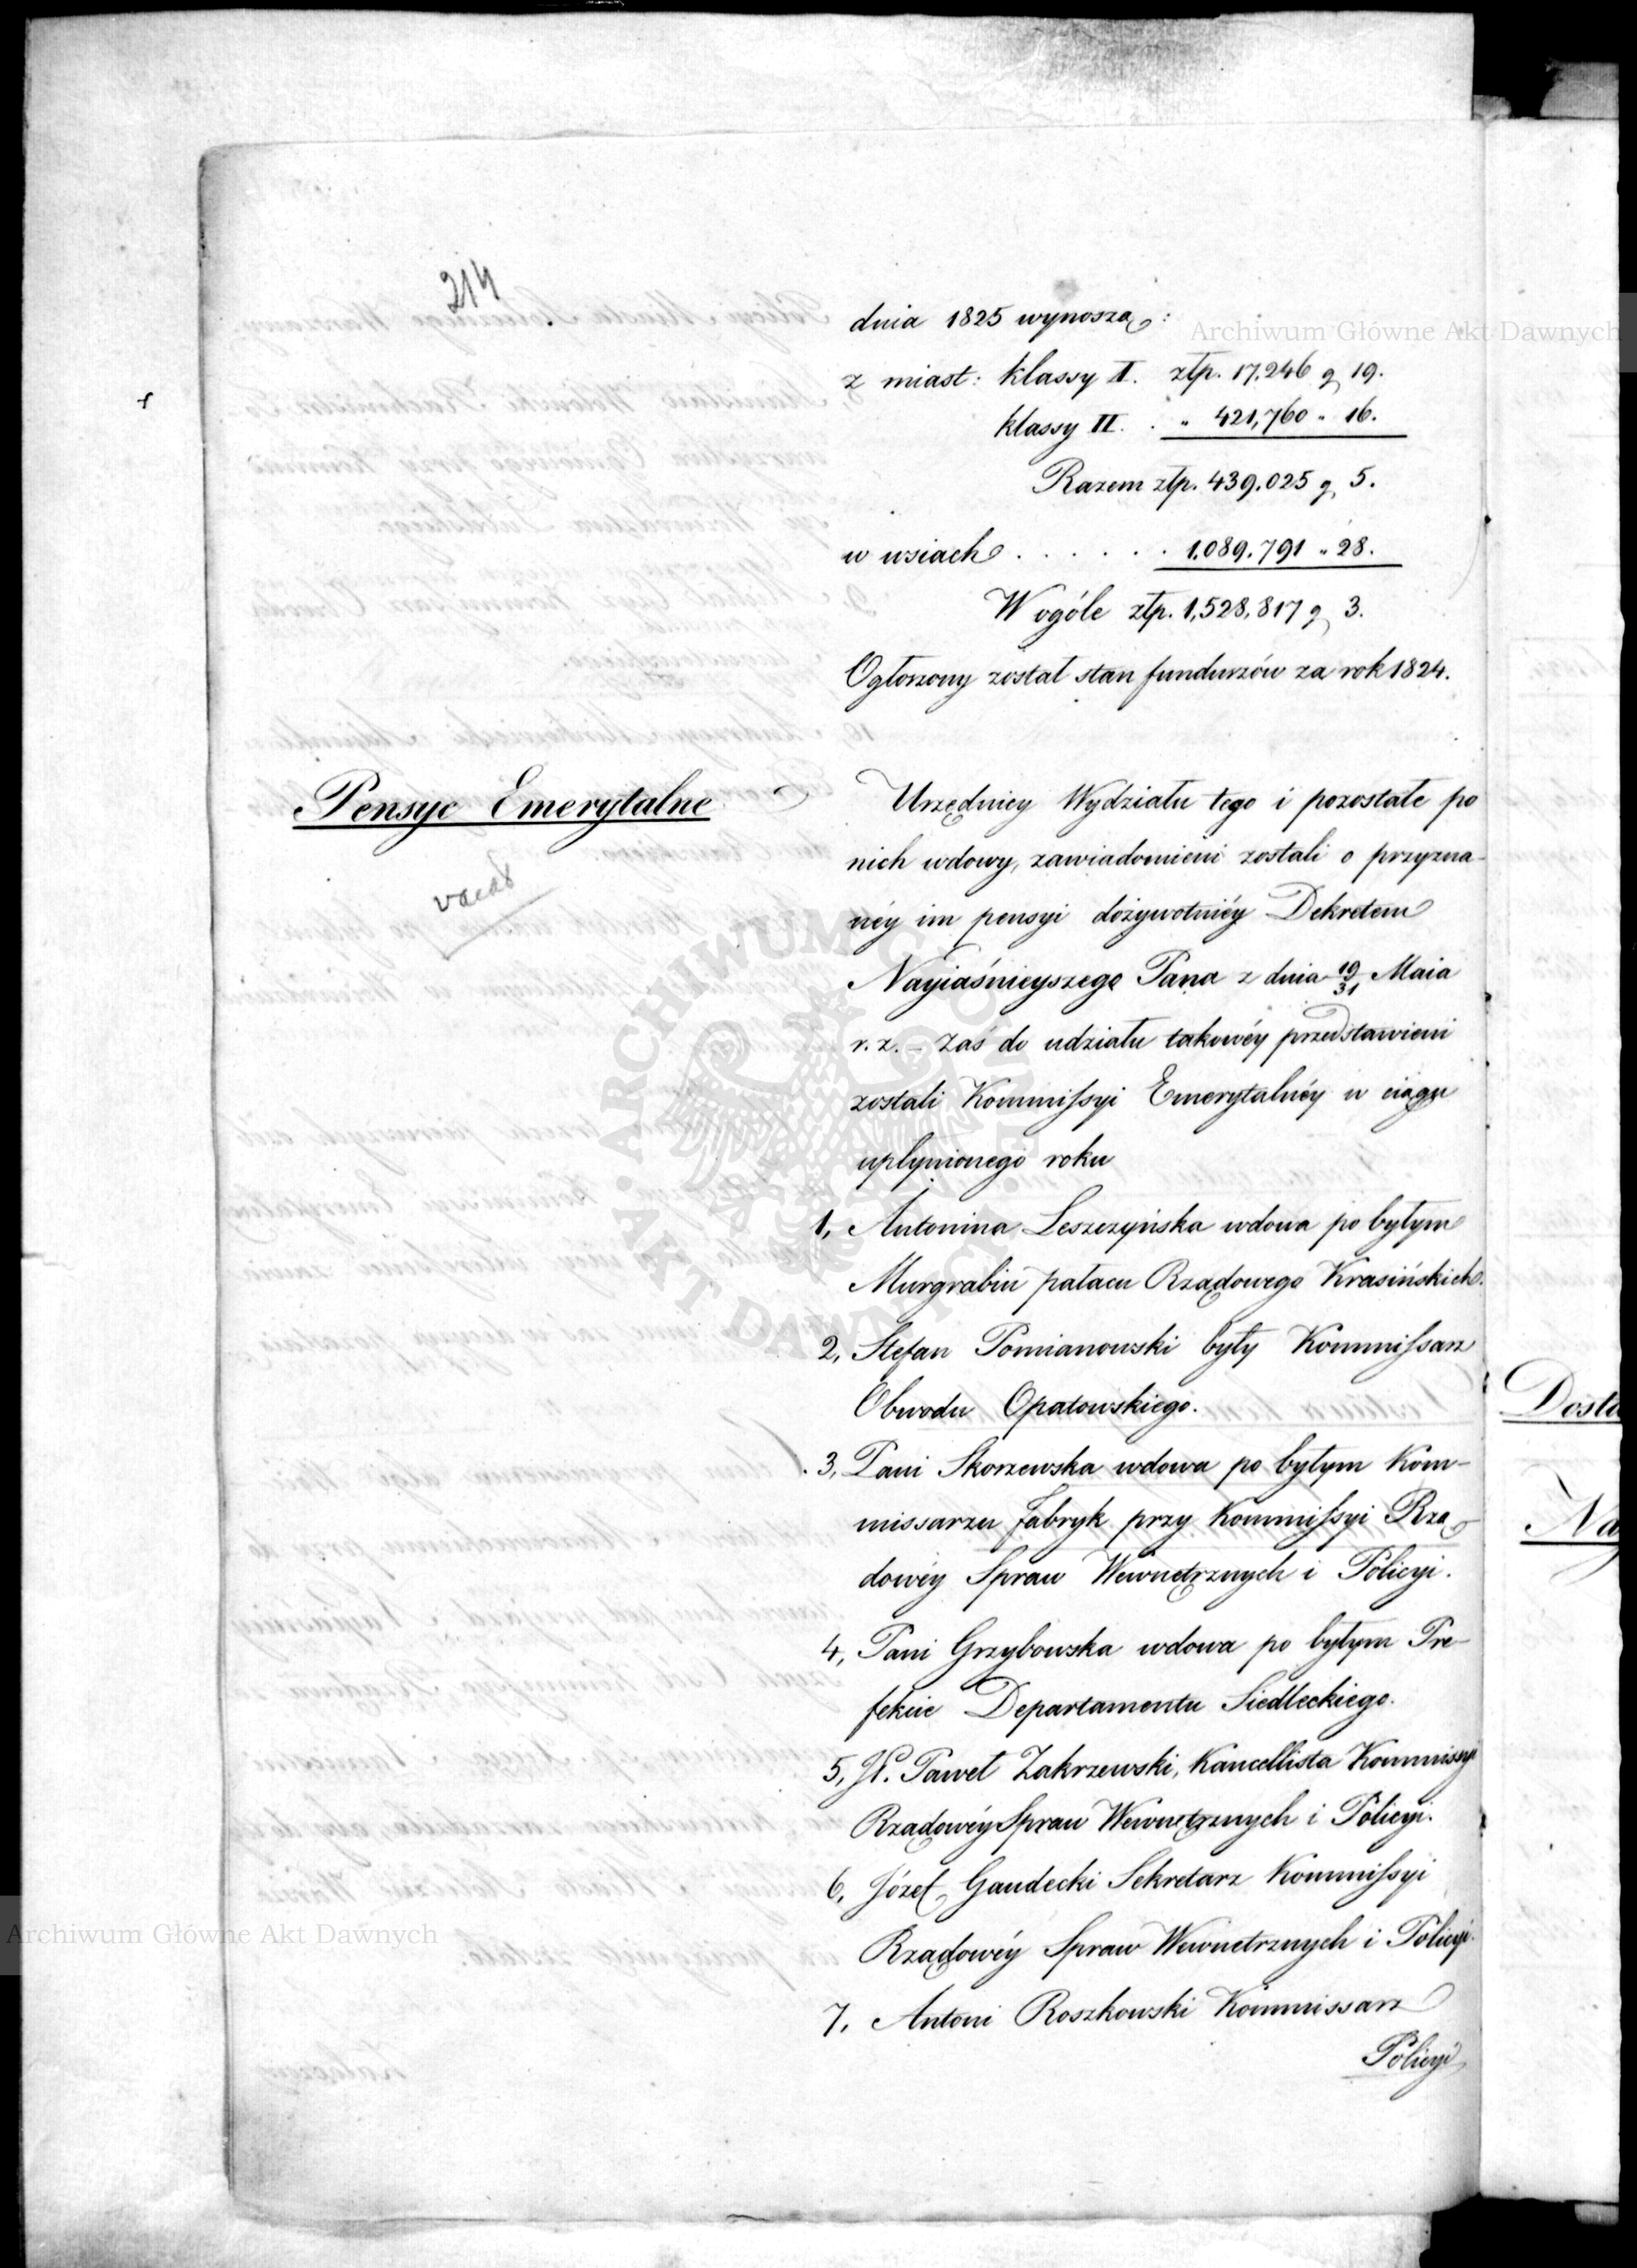 214
dnia 1825 wynoszą:
z miast: klassy I. złp. 17,246 g. 19.
klassy II. . " 421,760 " 16.
Razem złp. 439.025 g. 5.
w wsiach . . . . . . 1.089.791 " 28.
W ogóle złp. 1,528,817 g. 3.
Ogłoszony został stan funduszów za rok 1824.
Pensye Emerytalne
vacat
Urzędnicy Wydziału tego i pozostałe po
nich wdowy, zawiadomieni zostali o przyzna-
néy im pensyi dożywotniéy Dekretem
Nayiaśnieyszego Pana z dnia 19/31 Maia
r. z. – zaś do udziału takowéy przedstawieni
zostali Kommissyi Emerytalnéy w ciągu
upłynionego roku
1, Antonina Leszczyńska wdowa po byłym
Murgrabiu pałacu Rządowego Krasińskich.
2, Stefan Pomianowski były Kommissarz
Obwodu Opatowskiego.
3, Pani Skorzewska wdowa po byłym Kom-
missarzu fabryk przy Kommissyi Rzą-
dowéy Spraw Wewnętrznych i Policyi.
4, Pani Grzybowska wdowa po byłym Pre-
fekcie Departamentu Siedleckiego.
5, JP. Paweł Zakrzewski, Kancellista Kommissyi
Rządowéy Spraw Wewnętrznych i Policyi.
6, Józef Gaudecki Sekretarz Kommissyi
Rządowéy Spraw Wewnętrznych i Policyi.
7, Antoni Roszkowski Kommissarz
Policyi
Dosta
Na
Archiwum Główne Akt Dawnych
Archiwum Główne Akt Dawnych